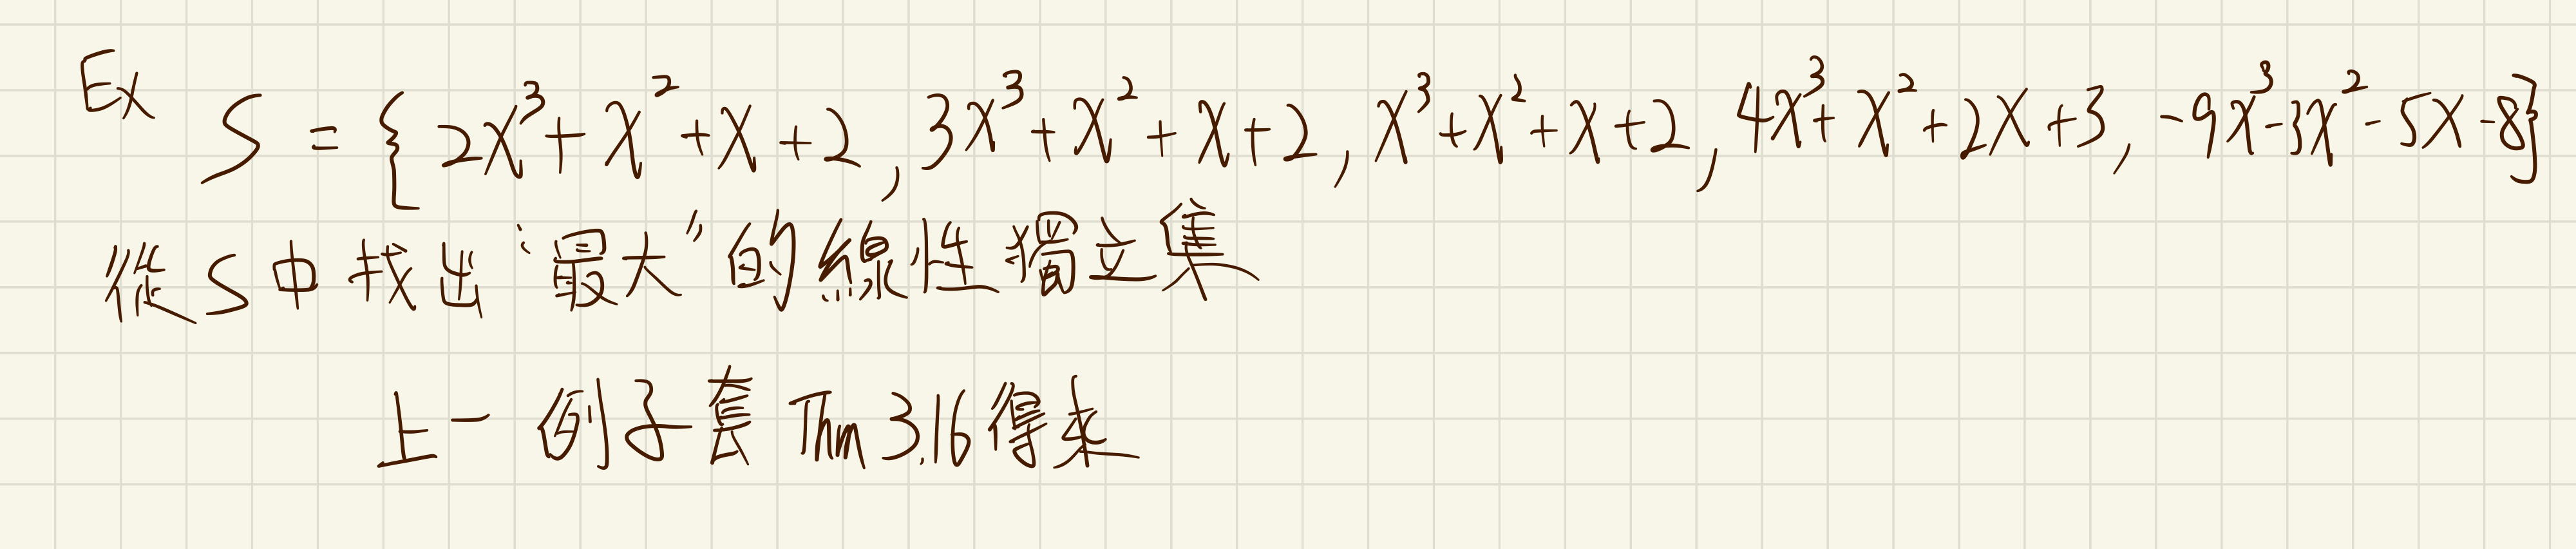 Ex S = { 2x³ + x² + x + 2, 3x³ + x² + x + 2, x³ + x² + x + 2, 4x³ + x² + 2x + 3, -9x³ - 3x² - 5x - 8 }
從 S 中找出 "最大" 的線性獨立集
上一例子套 Thm 3.16 得來